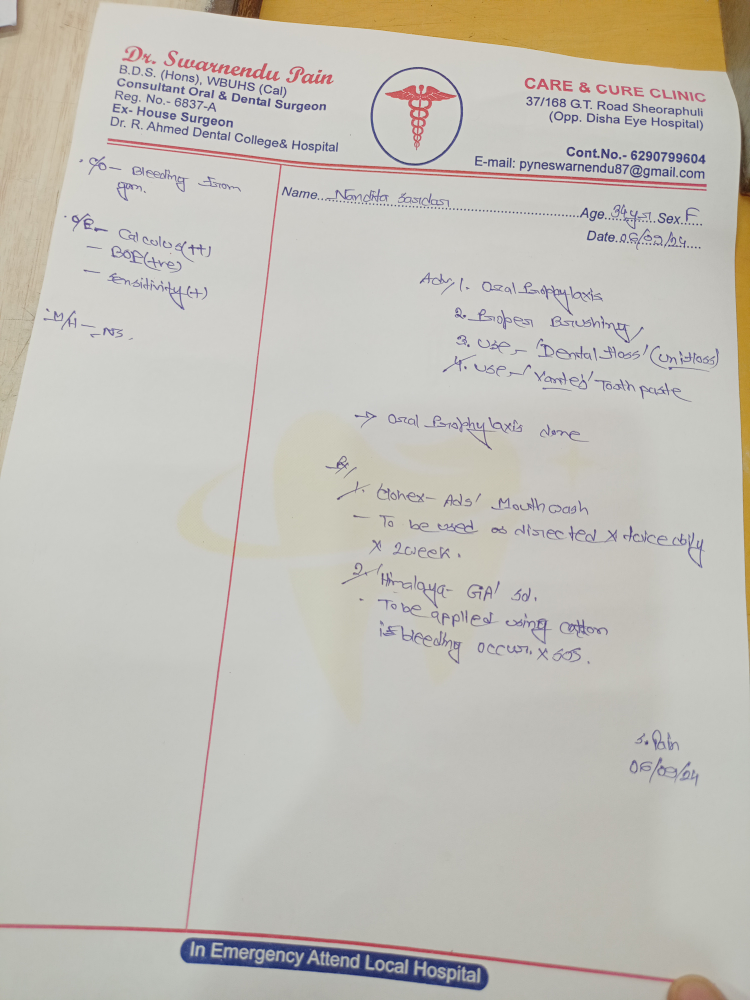 Dr. Swarnendu Pain
B.D.S. (Hons), WBUHS (Cal)
Consultant Oral & Dental Surgeon
Reg. No.- 6837-A
Ex- House Surgeon
Dr. R. Ahmed Dental College& Hospital
CARE & CURE CLINIC
37/168 G.T. Road Sheoraphuli
(Opp. Disha Eye Hospital)
Cont.No.- 6290799604
E-mail: pyneswarnendu87@gmail.com
Name... Nandita Sardar
Age. 34yrs. Sex. F
Date. 06/09/24
C/O - Bleeding from
gum.
O/E - Calculus(++)
- BOP(+ve)
- Sensitivity(+)
M/H - NS.
Adv/ 1. Oral Prophylaxis
2. Proper Brushing
3. use - 'Dental floss' (unifloss)
4. use - 'Vantej' Toothpaste
→ Oral Prophylaxis done
Rx/
1. 'Clohex - Ads' Mouthwash
- To be used as directed x twice daily
x 2week.
2. 'Himalaya - GA' sol.
- To be applied using cotton
if bleeding occur. x SOS.
S. Pain
06/09/24
In Emergency Attend Local Hospital